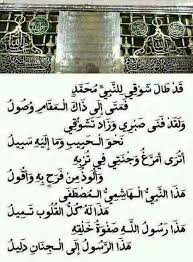 قَدْ طَالَ شَوْقِي لِلنَّبِيِّ مُحَمَّدٍ
فَمَتَى إِلَى ذَاكَ الْمَقَامِ وُصُولُ
وَلَقَدْ فَنَى صَبْرِي وَزَادَ تَشَوُّقِي
نَحْوَ الْحَبِيبِ وَمَا إِلَيْهِ سَبِيلُ
أَتُرَى أُمَرِّغُ وَجْنَتِي فِي تُرْبِهِ
وَأَلُوذُ مِنْ فَرَحٍ بِهِ وَأَقُولُ
هَذَا النَّبِيُّ الْهَاشِمِيُّ الْمُصْطَفَى
هَذَا لَهُ كُلُّ الْقُلُوبِ تَمِيلُ
هَذَا رَسُولُ اللهِ صَفْوَةُ خَلْقِهِ
هَذَا الرَّسُولُ إِلَى الْجِنَانِ دَلِيلُ